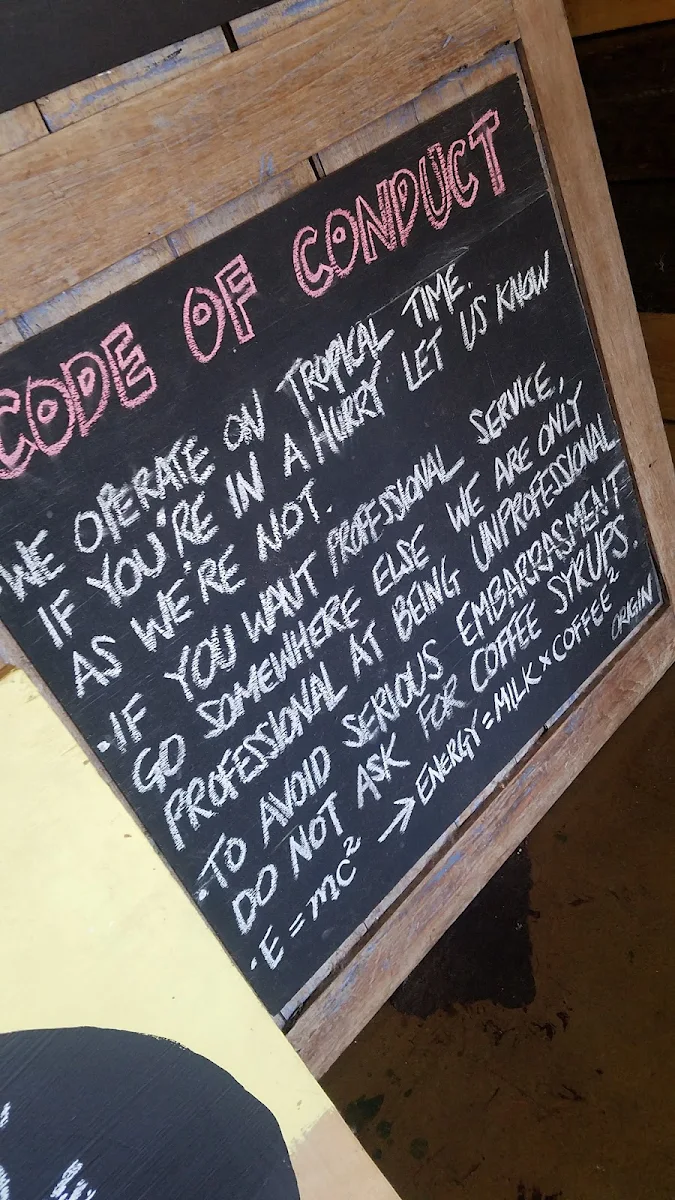 CODE OF CONDUCT
·WE OPERATE ON TROPICAL TIME.
IF YOU'RE IN A HURRY LET US KNOW
AS WE'RE NOT.
·IF YOU WANT PROFESSIONAL SERVICE,
GO SOMEWHERE ELSE WE ARE ONLY
PROFESSIONAL AT BEING UNPROFESSIONAL
·TO AVOID SERIOUS EMBARRASMENT
DO NOT ASK FOR COFFEE SYRUPS.
·E=mc² → ENERGY=MILK×COFFEE²
ORIGIN